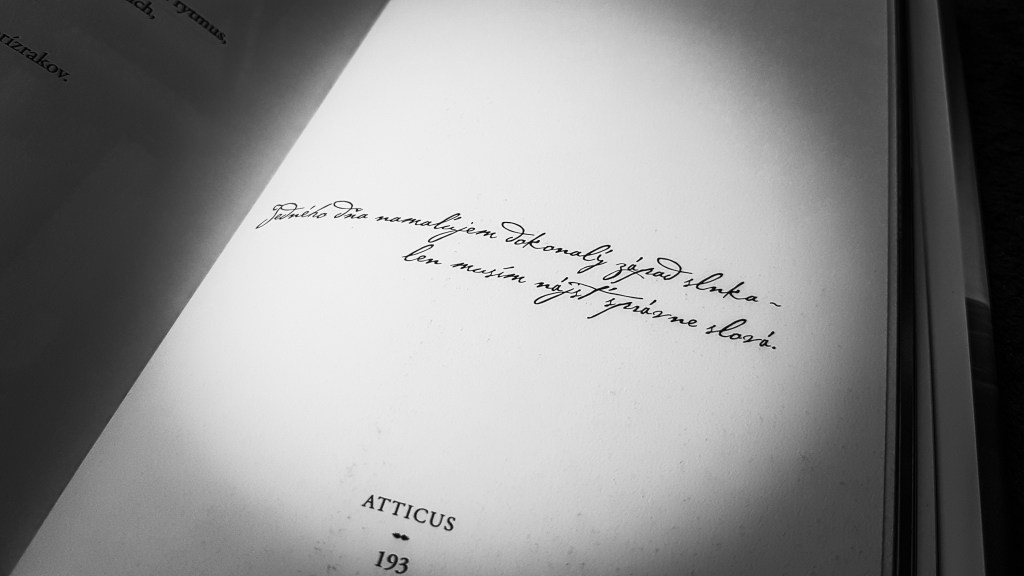 rytmus,
rízrakov.
Jedného dňa namaľujem dokonalý západ slnka ~
len musím nájsť správne slová.
ATTICUS
193